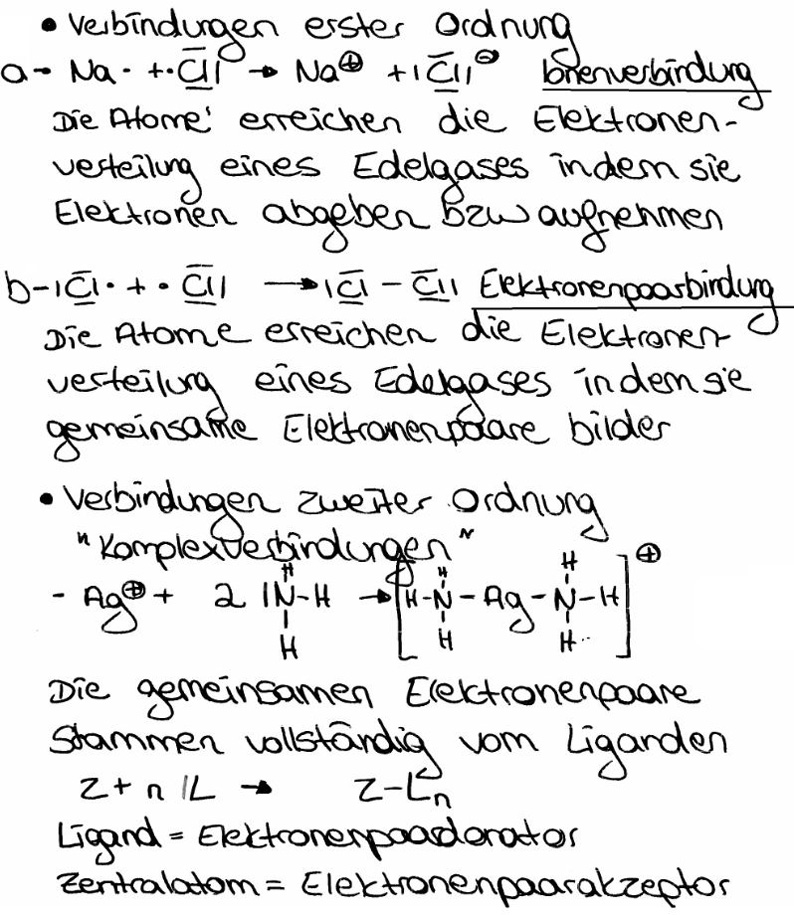 • Verbindungen erster Ordnung
a- Na· + ·C̲̅l̅| → Na⊕ + |C̲̅l̅|⊖ Ionenverbindung
Die Atome erreichen die Elektronen-
verteilung eines Edelgases indem sie
Elektronen abgeben bzw aufnehmen
b- |C̲̅l· + ·C̲̅l| → |C̲̅l – C̲̅l| Elektronenpaarbindung
Die Atome erreichen die Elektronen-
verteilung eines Edelgases indem sie
gemeinsame Elektronenpaare bilden
• Verbindungen zweiter Ordnung
"Komplexverbindungen"
H H H ⊕
- Ag⊕ + 2 |N-H → [H-N-Ag-N-H]
H H H
Die gemeinsamen Elektronenpaare
stammen vollständig vom Liganden
Z + n |L → Z-Ln
Ligand = Elektronenpaardonator
Zentralatom = Elektronenpaarakzeptor